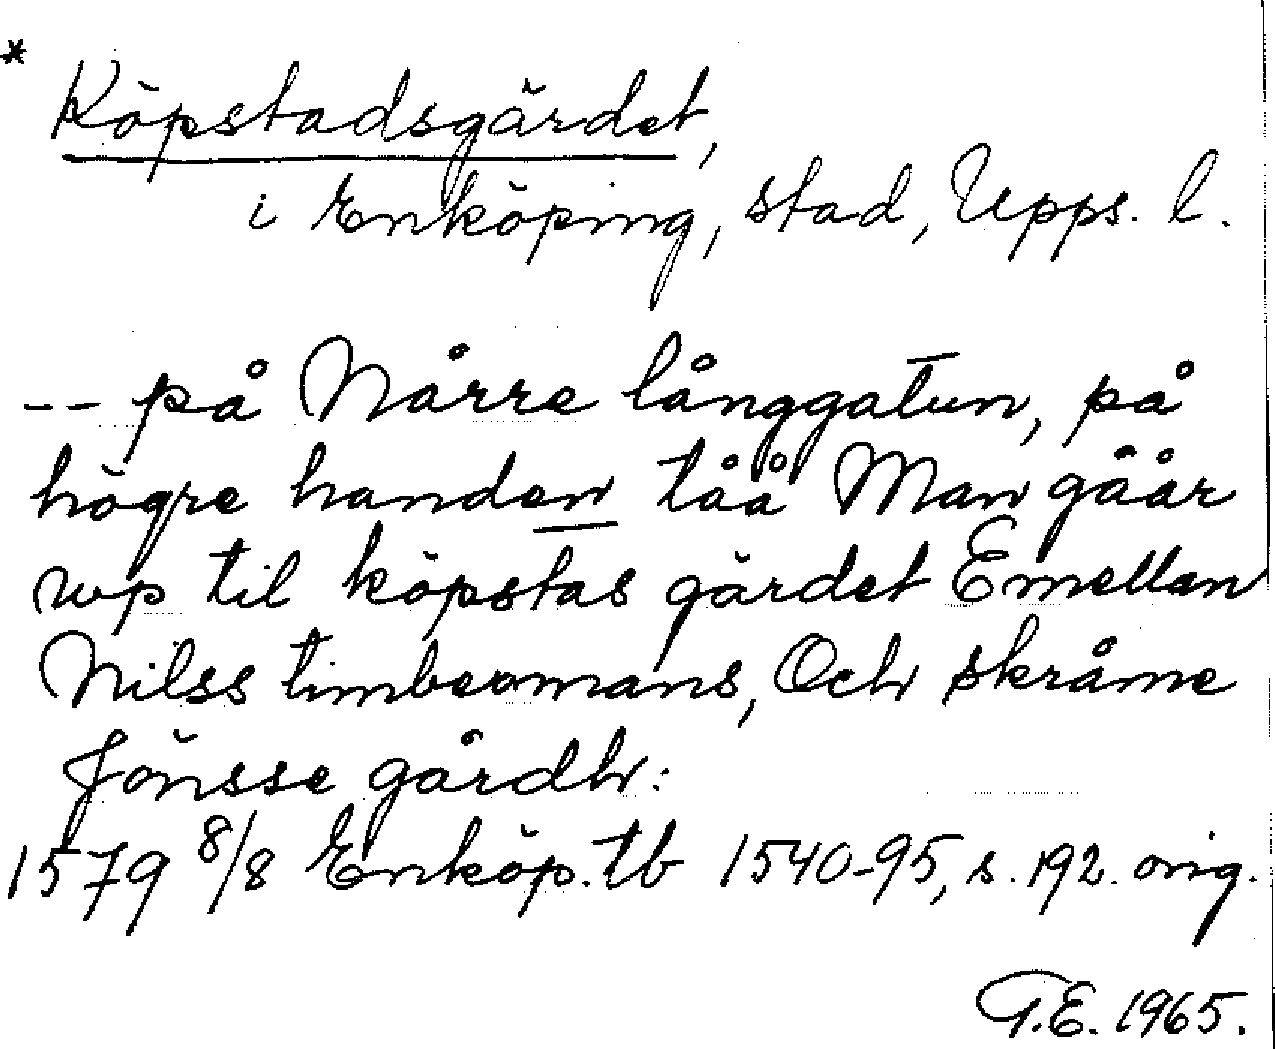 * Köpstadsgärdet,
i Enköping, stad, Upps. l.
-- på Nårre långgatun, på
högre handen tåå Man gåår
wp til köpstas gärdet Emellan
Nilss timbermans, Och skråme
Jönsse gårdh:
1579 8/8 Enköp. tb 1540-95, s. 192. orig.
T.E. 1965.